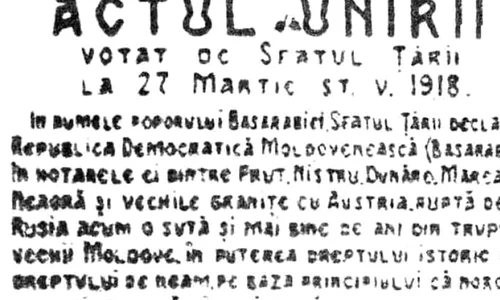 ACTUL UNIRII
VOTAT DE SFATUL ȚĂRII
LA 27 MARTIE ST. V. 1918.
IN NUMELE POPORULUI BASARABIEI, SFATUL ȚĂRII DECLA
REPUBLICA DEMOCRATICĂ MOLDOVENEASCĂ (BASARAB
ÎN HOTARELE EI DINTRE PRUT, NISTRU, DUNĂRE, MAREA
NEAGRĂ ȘI VECHILE GRANIȚE CU AUSTRIA, RUPTĂ DE
RUSIA ACUM O SUTĂ ȘI MAI BINE DE ANI DIN TRUP
VECHII MOLDOVE, ÎN PUTEREA DREPTULUI ISTORIC
DREPTULUI DE NEAM, PE BAZA PRINCIPIULUI CĂ NORO